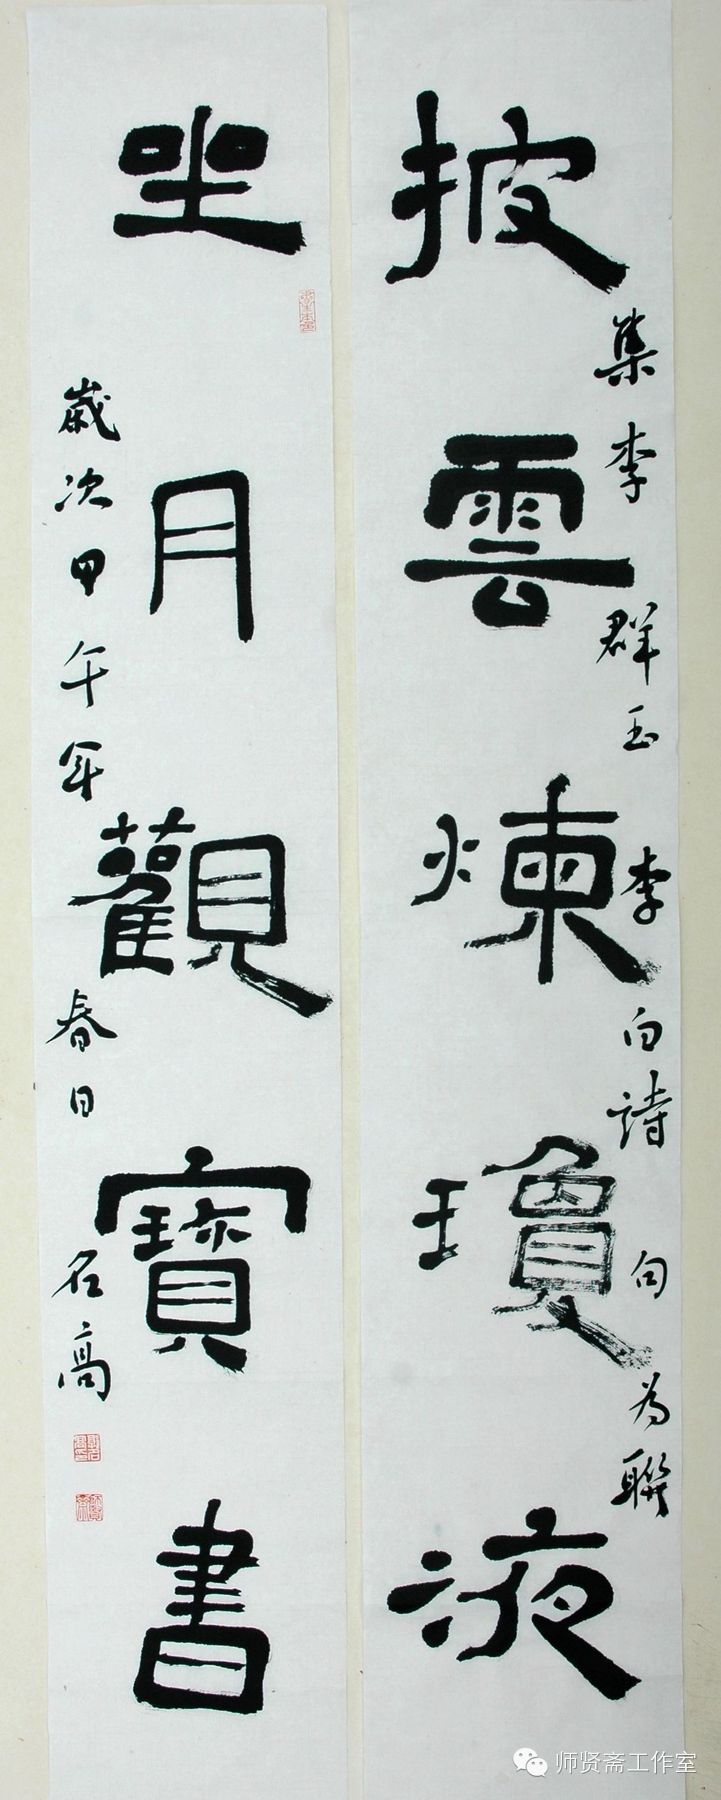 披雲煉瓊液
集李群玉李白詩句為聯
坐月觀寶書
歲次甲午年春日名高
师贤斋工作室